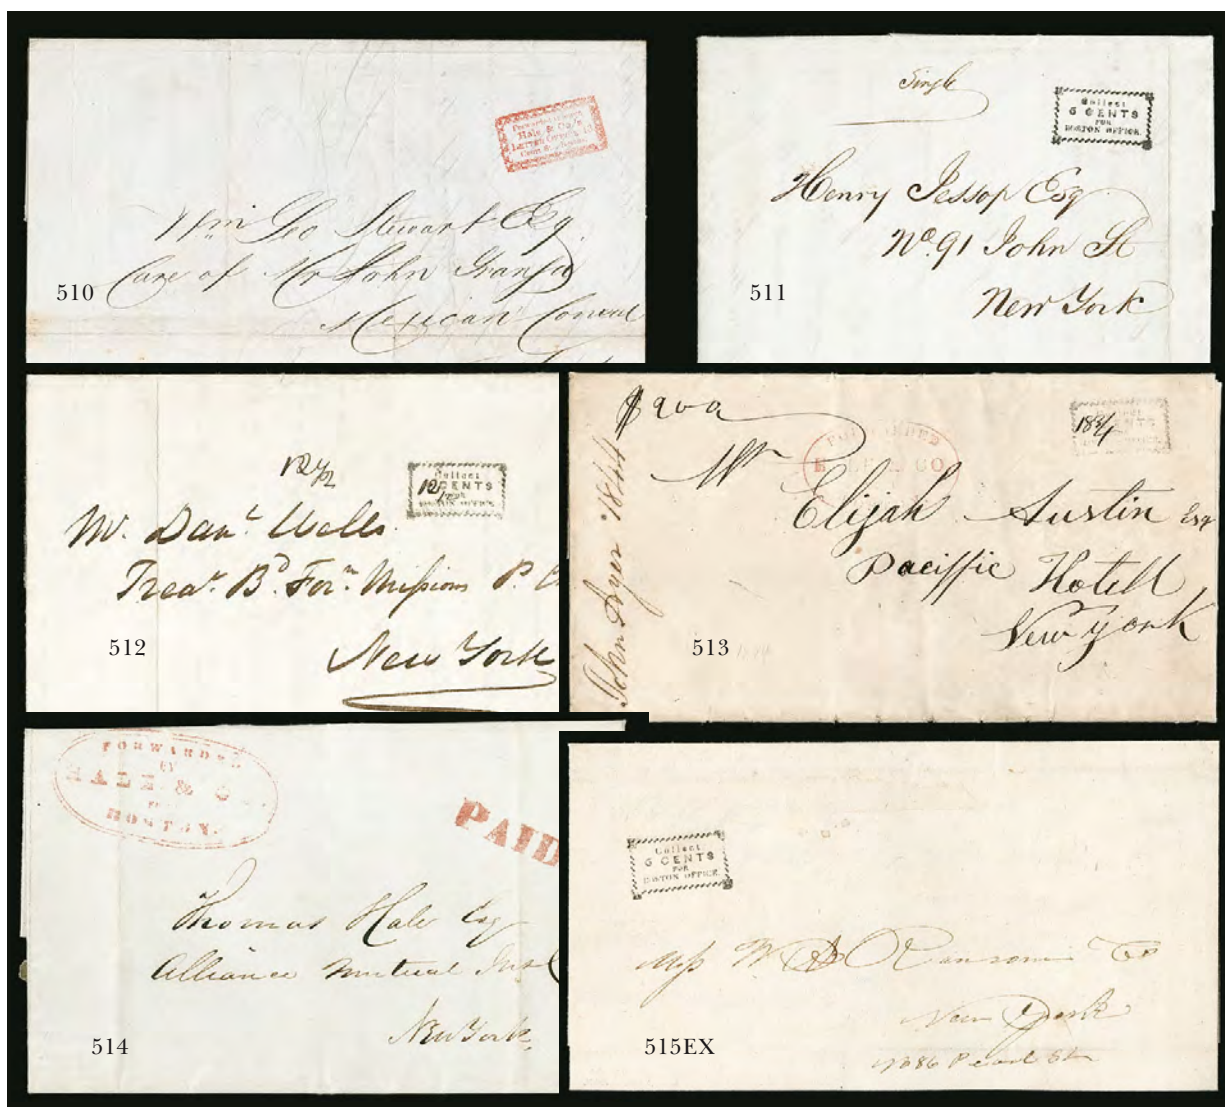 Hale & Co.'s
Wm Geo Stewart Esq.
Care of Mr John
Mexican Consul
510
Single
Collect
6 CENTS
FOR
BOSTON OFFICE.
Henry Jessop Esq
No. 91 John St
New York
511
12 1/2
Collect
CENTS
12 1/2
BOSTON OFFICE.
Mr. Danl. Wells
Trear. Bd. For.n Missions P.
New York
512
John Dyer 1844
FORWARDED
CO
18 3/4
Mr Elijah Austin Esq
Paciffic Hotell
New york
513
FORWARDED
BY
HALE & CO.
BOSTON.
PAID
Thomas Hale Esq
Alliance Mutual Ins
New York,
514
Collect
6 CENTS
FOR
BOSTON OFFICE.
Mess W. Ransom Co
New York
86 Pearl Str
515EX